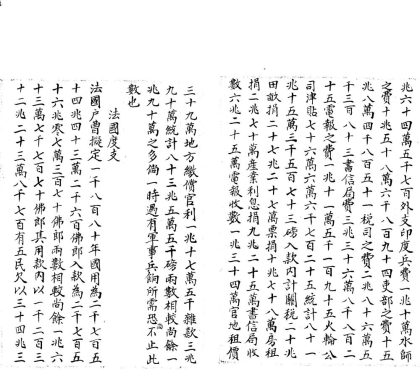 兆六十四萬五千七百外支印度兵費一兆十萬水師
之費十五兆八萬六千八百二十四吏部之費十五
兆八萬四千八百五十一税司之費二兆八十六萬五
千三百八十三書信局費三兆三十六萬八千八百二
十五電報之費一兆十一萬五千一百九十五火輪公
司津貼七十六萬六千七百二十五統計八十一
兆十五萬二千五百七十三磅入款內計關税二十兆
田畝捐二十七兆二十七萬票捐十兆七十八萬房租
捐二兆七十萬產業利息捐九兆二十五萬書信局收
數六兆二十五萬電報收數一兆三十四萬官地租價
三十九萬地方繳價官利一兆十七萬五千雜款三兆
九十萬統計八十三兆五萬五千磅兩數相較尚餘一
兆九十萬之多倘一時遇有軍事兵餉所需恐不止此
數也
法國度支
法國戶曹擬定一千八百八十年國用為二千七百五
十四兆四十三萬二千六百佛郎入款為二千七百五
十六兆零七萬三百七十佛郎兩數相較尚餘一兆六
十三萬七千七百七十佛郎其用款內以一千二百三
十二兆二十三萬八千七百有五民欠以三十四兆三